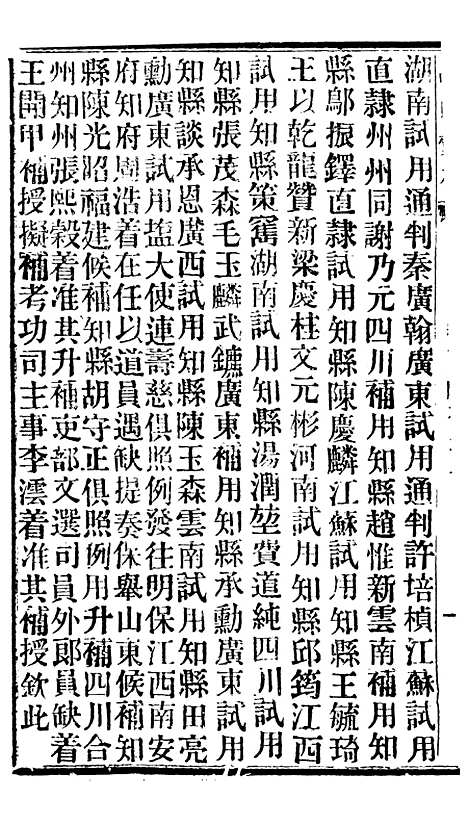 湖南試用通判秦廣翰廣東試用通判許培楨江蘇試用
直隸州州同謝乃元四川補用知縣趙惟新雲南補用知
縣鄔振鐸直隸試用知縣陳慶麟江蘇試用知縣王毓琦
王以乾龍贊新梁慶桂文元彬河南試用知縣邱筠江西
試用知縣策鶱湖南試用知縣湯潤埜費道純四川試用
知縣張茂森毛玉麟武鑣廣東補用知縣承勳廣東試用
知縣談承恩廣西試用知縣陳玉森雲南試用知縣田亮
勳廣東試用塩大使連壽慈俱照例發往明保江西南安
府知府周浩着在任以道員遇缺提奏保舉山東候補知
縣陳光昭福建候補知縣胡守正俱照例用升補四川合
州知州張熙穀着准其升補吏部文選司員外郎員缺着
王開甲補授擬補考功司主事李澐着准其補授欽此